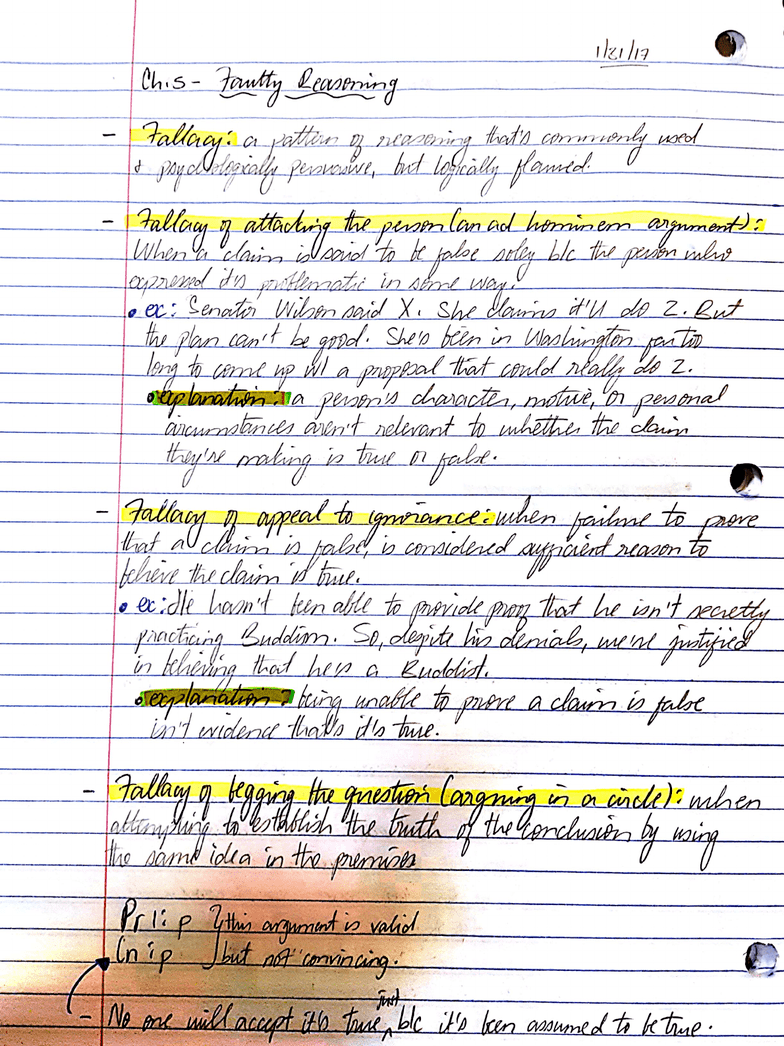 1/31/17
Ch.5 - Faulty Reasoning
- Fallacy: a pattern of reasoning that's commonly used
& psychologically persuasive, but logically flawed.
- Fallacy of attacking the person (an ad hominem argument):
When a claim is said to be false soley b/c the person who
expressed it is problematic in some way.
• ex: Senator Wilson said X. She claims it'll do Z. But
the plan can't be good. She's been in Washington far too
long to come up w/ a proposal that could really do Z.
• explanation: a person's character, motive, or personal
circumstances aren't relevant to whether the claim
they're making is true or false.
- Fallacy of appeal to ignorance: when failure to prove
that a claim is false, is considered sufficient reason to
believe the claim is true.
• ex: He hasn't been able to provide proof that he isn't secretly
practicing Buddism. So, despite his denials, we're justified
in believing that he is a Buddist.
• explanation: being unable to prove a claim is false
isn't evidence that's it's true.
- Fallacy of begging the question (arguing in a circle): when
attempting to establish the truth of the conclusion by using
the same idea in the premises
Pr 1: p } this argument is valid
Cn: p } but not convincing.
- No one will accept it's true just b/c it's been assumed to be true.